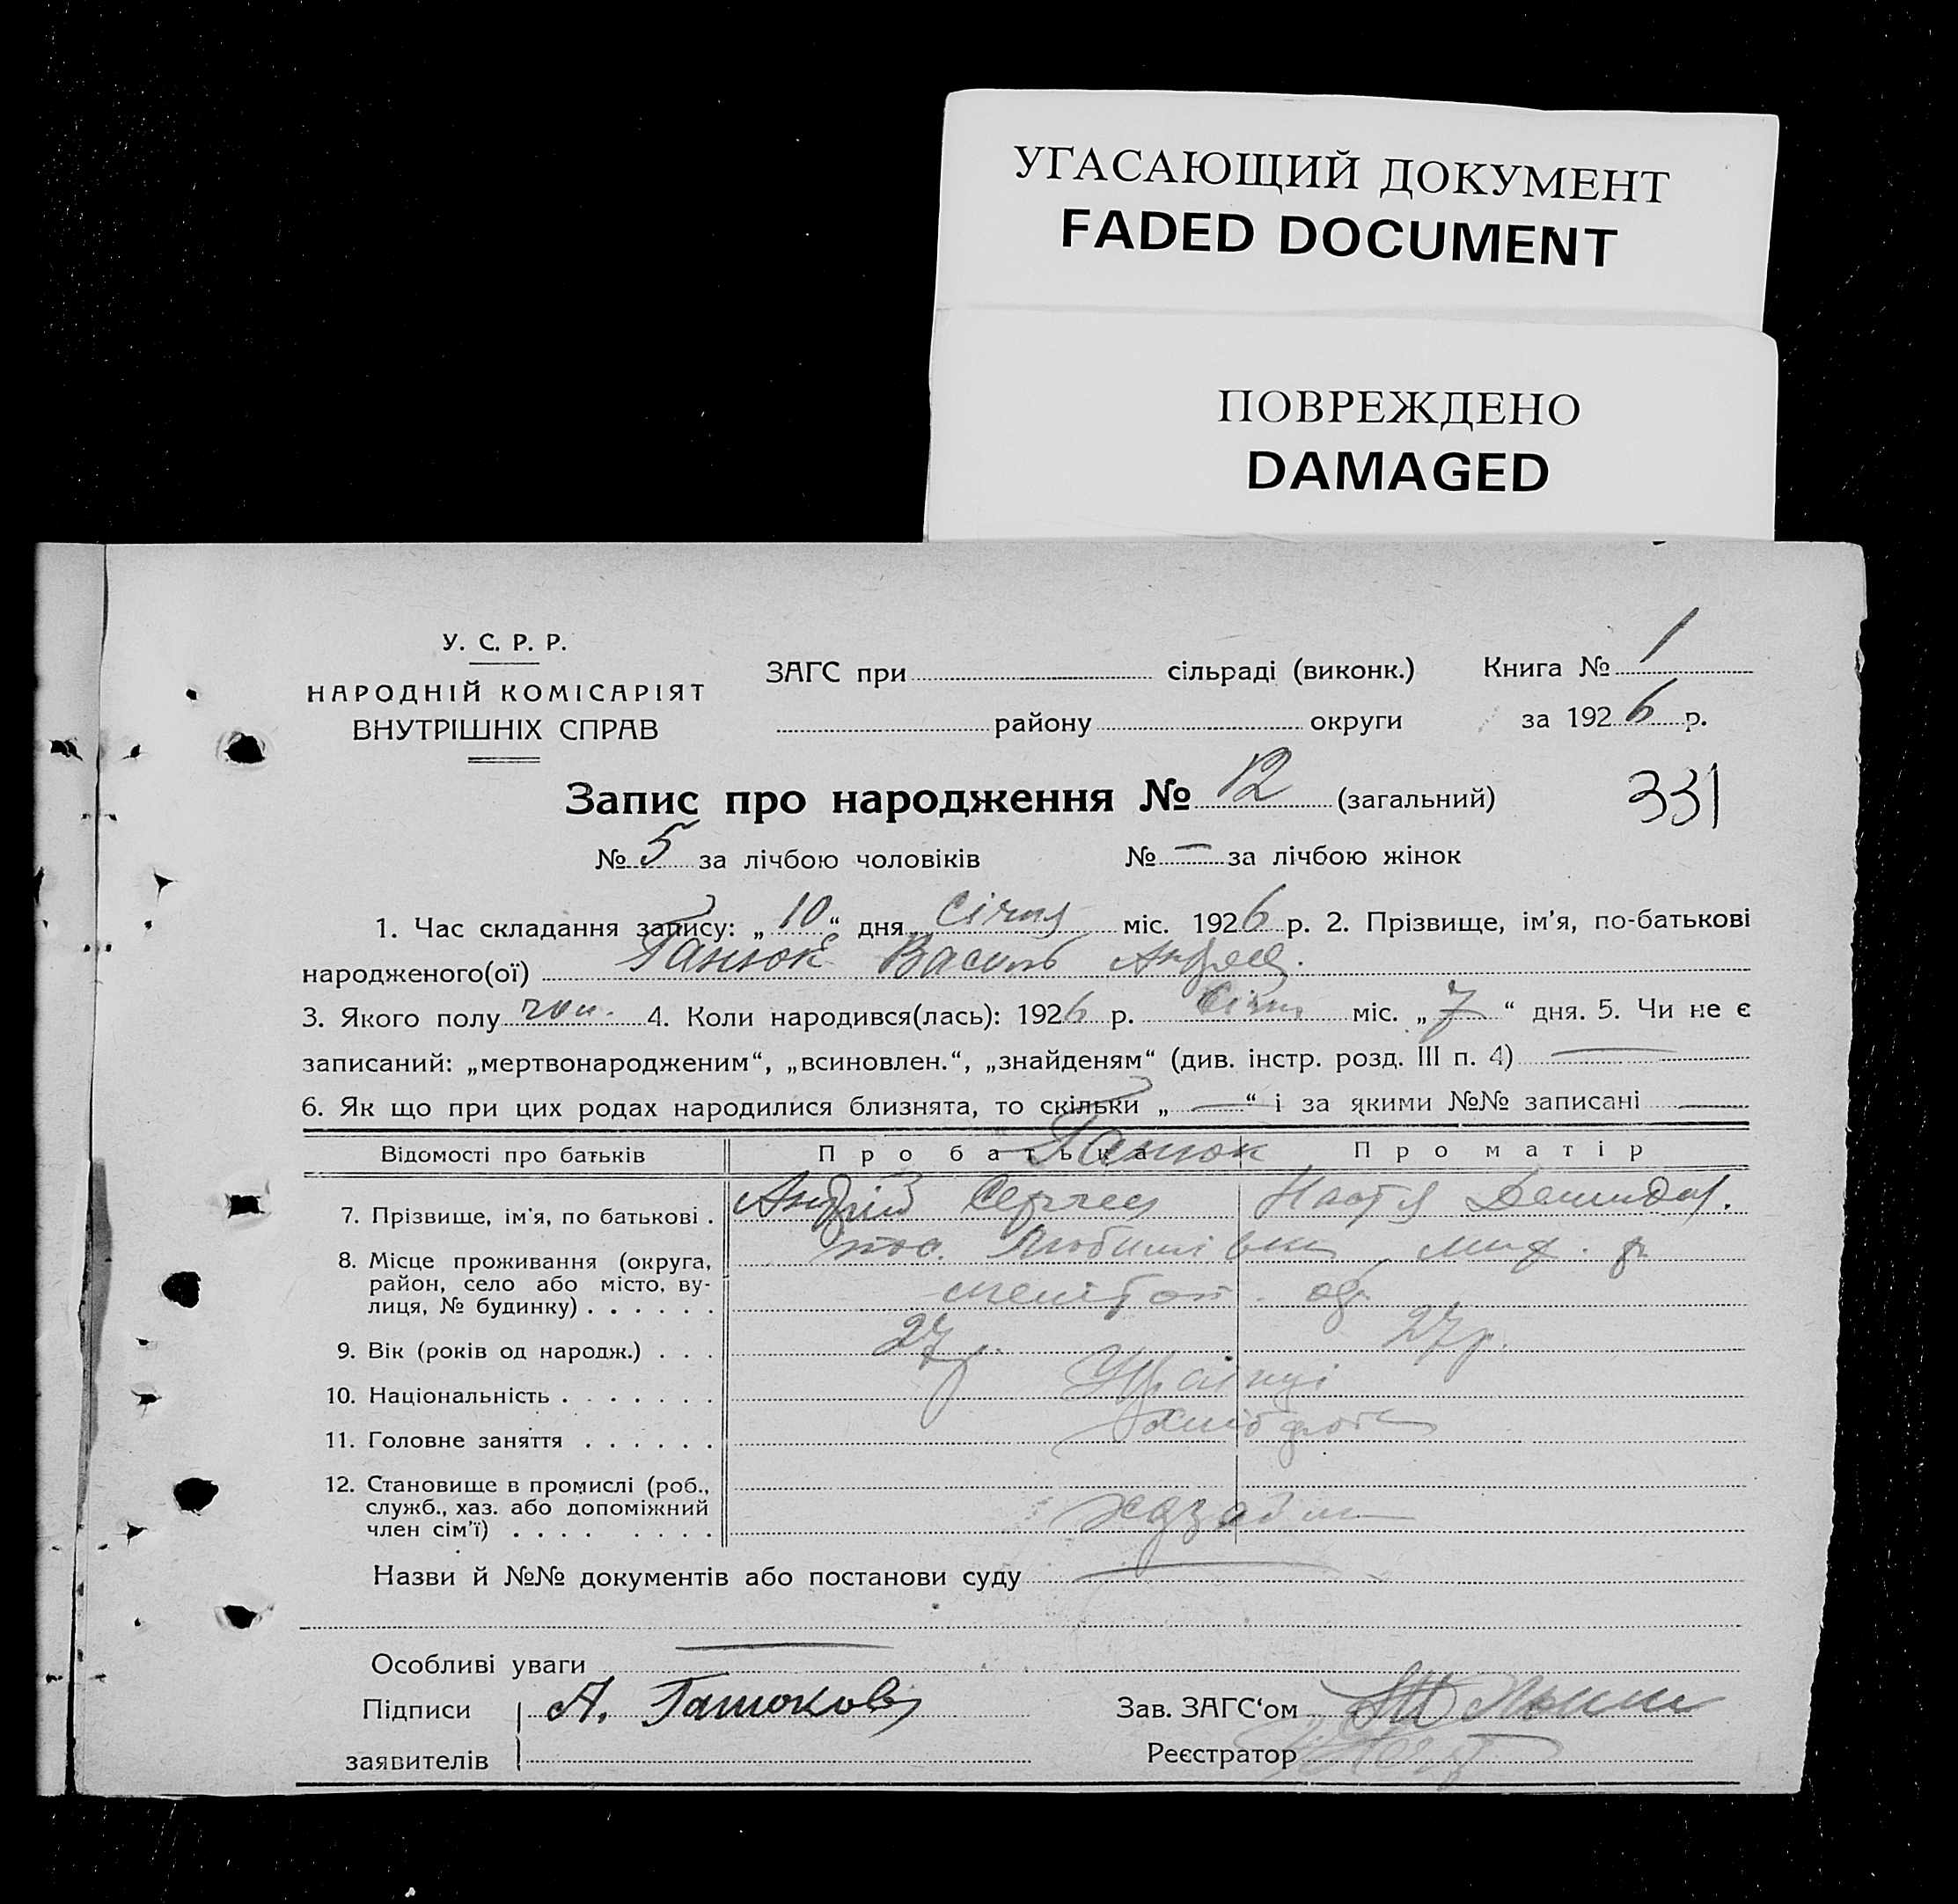 УГАСАЮЩИЙ ДОКУМЕНТ
FADED DOCUMENT
ПОВРЕЖДЕНО
DAMAGED
У. С. Р. Р.
НАРОДНІЙ КОМІСАРІЯТ
ВНУТРІШНІХ СПРАВ
ЗАГС при сільраді (виконк.) Книга № 1
району округи за 1926 р.
Запис про народження № 12 (загальний) 331
№ 5 за лічбою чоловіків № — за лічбою жінок
1. Час складання запису: „10“ дня Січня міс. 1926 р. 2. Прізвище, ім'я, по-батькові
народженого(ої) Василь Андрєєв.
3. Якого полу чол. 4. Коли народився(лась): 1926 р. Січня міс. „7“ дня. 5. Чи не є
записаний: „мертвонародженим“, „всиновлен.“, „знайденям“ (див. інстр. розд. III п. 4) —
6. Як що при цих родах народилися близнята, то скільки „—“ і за якими №№ записані —
Відомості про батьків Про батька Про матір
7. Прізвище, ім'я, по батькові . Андрій Сергієв Настя Демидов.
8. Місце проживання (округа,
район, село або місто, ву-
лиця, № будинку) . . . . . .
9. Вік (років од народж.) . . . 27 р. 27 р.
10. Національність . . . . . . . Українці
11. Головне заняття . . . . . . хлібороби
12. Становище в промислі (роб.,
служб., хаз. або допоміжний
член сім'ї) . . . . . . . .
Назви й №№ документів або постанови суду —
Особливі уваги —
Підписи А. Зав. ЗАГС'ом
заявителів Реєстратор